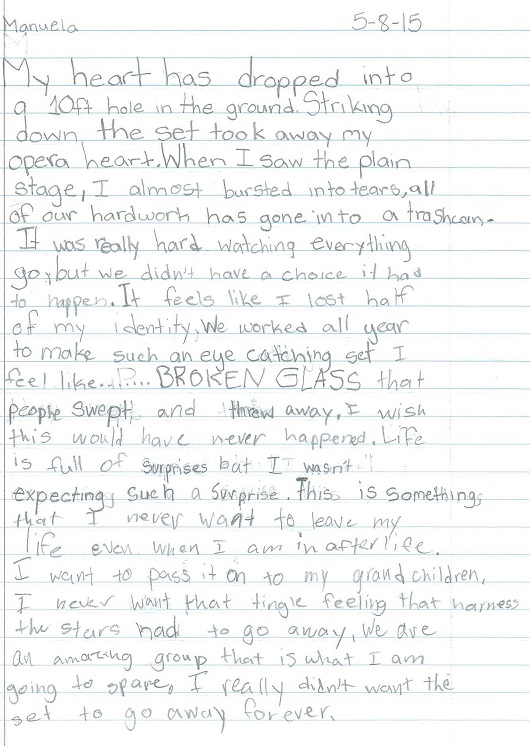 Manuela 5-8-15
My heart has dropped into
a 10ft hole in the ground. Striking
down the set took away my
opera heart. When I saw the plain
stage, I almost bursted into tears, all
of our hardwork has gone in to a trashcan.
It was really hard watching everything
go, but we didn't have a choice it had
to happen. It feels like I lost half
of my identity, We worked all year
to make such an eye catching set I
feel like..!?... BROKEN GLASS that
people swept and threw away. I wish
this would have never happened. Life
is full of surprises but I wasn't
expecting such a surprise. This is something
that I never want to leave my
life even when I am in after life.
I want to pass it on to my grand children,
I never want that tingle feeling that harness
the stars had to go away, We are
an amazing group that is what I am
going to spare, I really didn't want the
set to go away forever.